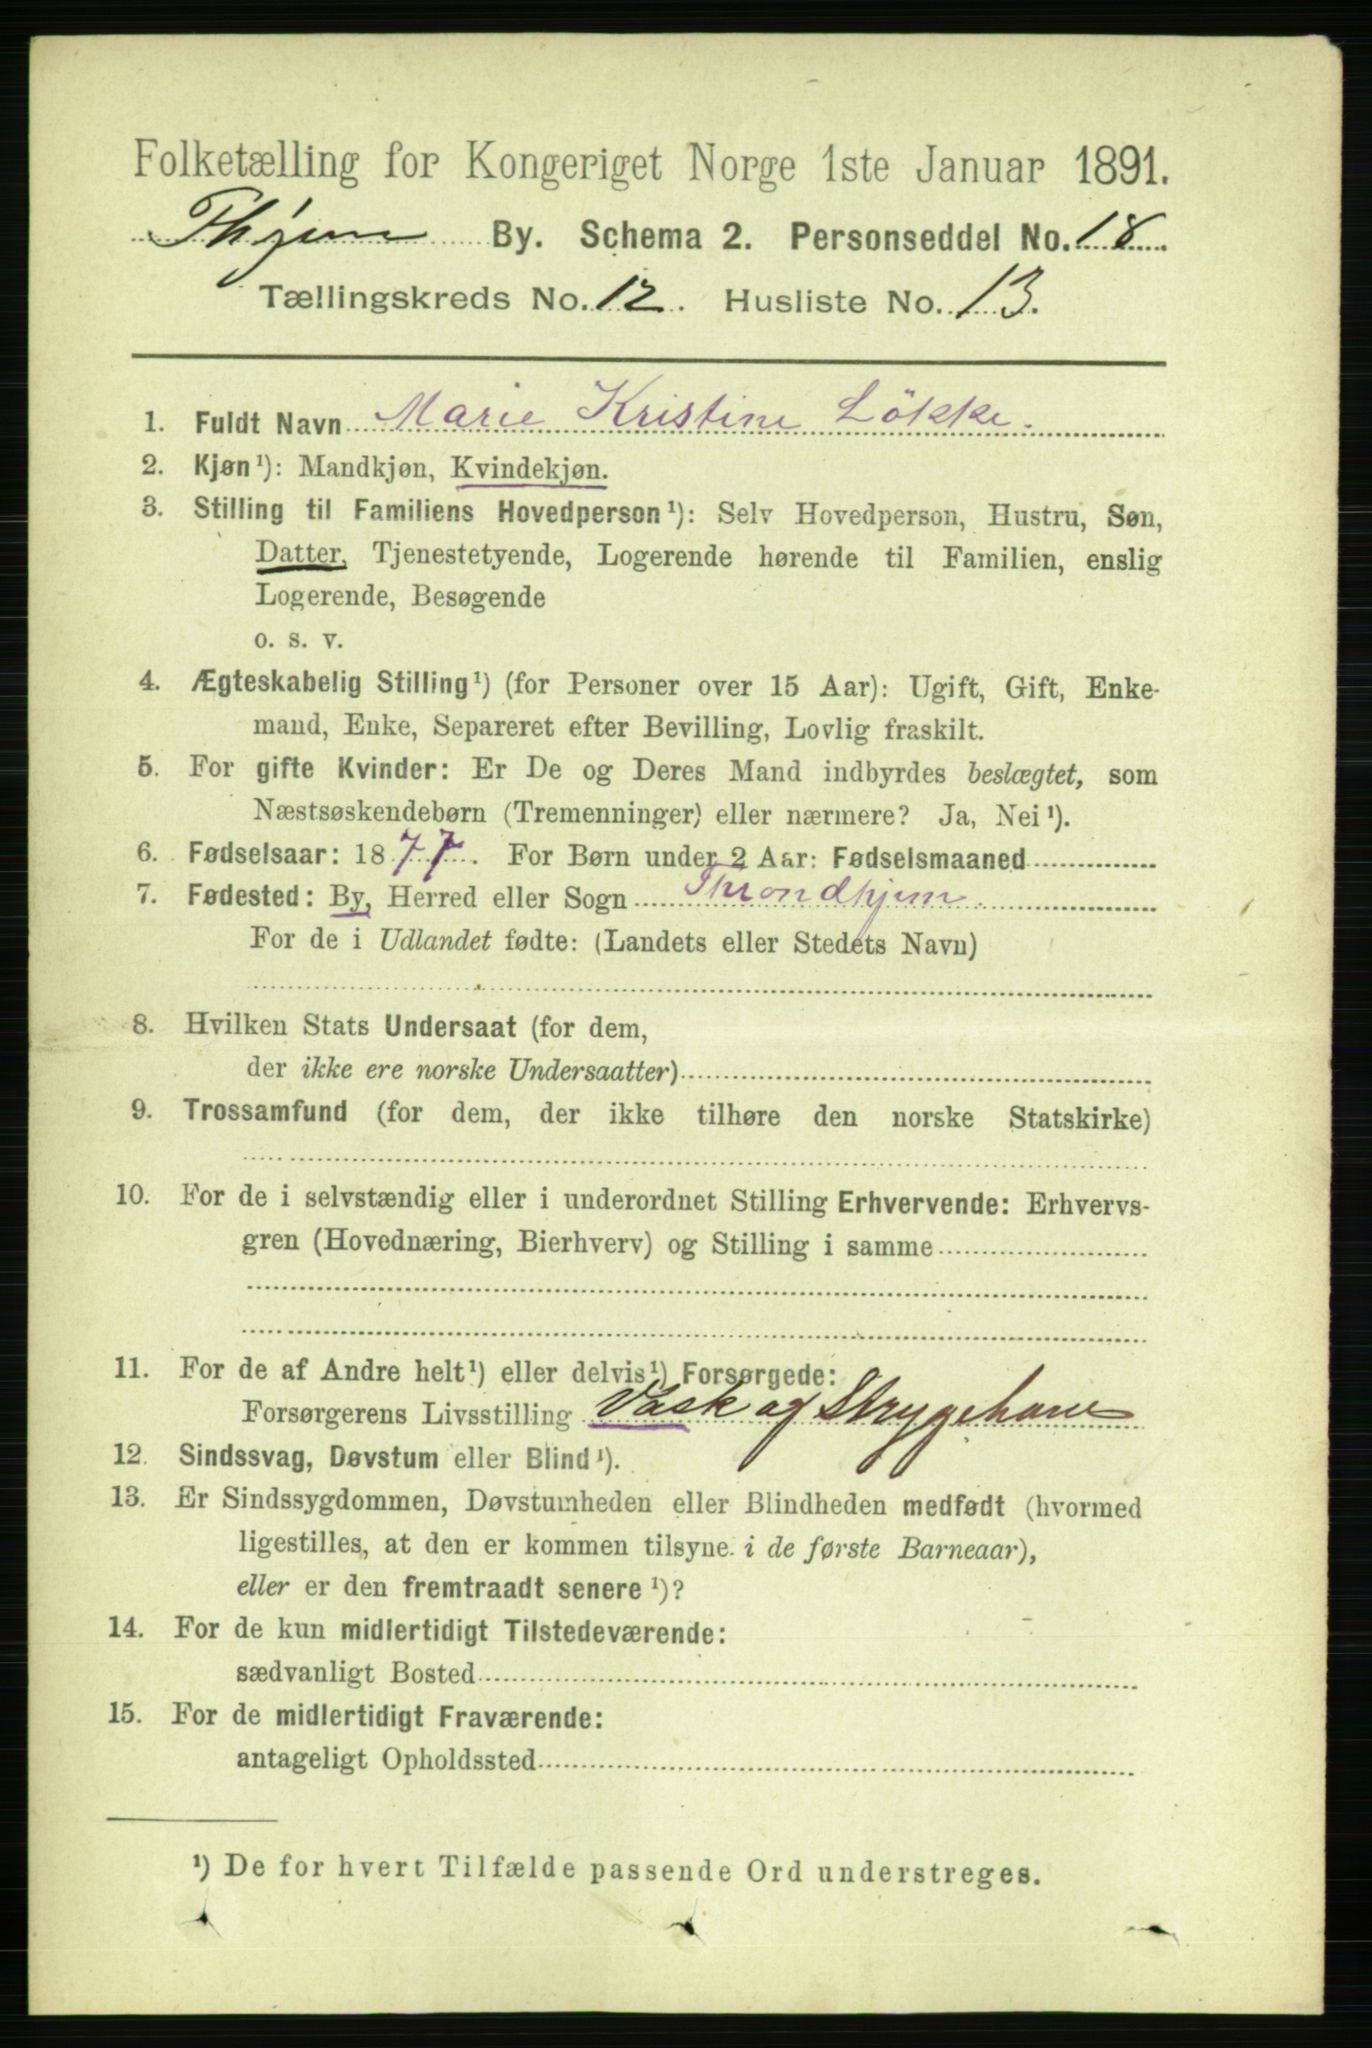 Folketælling for Kongeriget Norge 1ste Januar 1891.
Thjem By. Schema 2. Personseddel No. 18.
Tællingskreds No. 12. Husliste No. 13.
1. Fuldt Navn Marie Kristine Lökke.
2. Kjøn¹): Mandkjøn, Kvindekjøn.
3. Stilling til Familiens Hovedperson¹): Selv Hovedperson, Hustru, Søn,
Datter, Tjenestetyende, Logerende hørende til Familien, enslig
Logerende, Besøgende
o. s. v.
4. Ægteskabelig Stilling¹) (for Personer over 15 Aar): Ugift, Gift, Enke-
mand, Enke, Separeret efter Bevilling, Lovlig fraskilt.
5. For gifte Kvinder: Er De og Deres Mand indbyrdes beslægtet, som
Næstsøskendebørn (Tremenninger) eller nærmere? Ja, Nei¹).
6. Fødselsaar: 1877. For Børn under 2 Aar: Fødselsmaaned
7. Fødested: By, Herred eller Sogn Throndhjem.
For de i Udlandet fødte: (Landets eller Stedets Navn)
8. Hvilken Stats Undersaat (for dem,
der ikke ere norske Undersaatter)
9. Trossamfund (for dem, der ikke tilhøre den norske Statskirke)
10. For de i selvstændig eller i underordnet Stilling Erhvervende: Erhvervs-
gren (Hovednæring, Bierhverv) og Stilling i samme
11. For de af Andre helt¹) eller delvis¹) Forsørgede:
Forsørgerens Livsstilling Vask og Strygekone
12. Sindssvag, Døvstum eller Blind¹).
13. Er Sindssygdommen, Døvstumheden eller Blindheden medfødt (hvormed
ligestilles, at den er kommen tilsyne i de første Barneaar),
eller er den fremtraadt senere¹)?
14. For de kun midlertidigt Tilstedeværende:
sædvanligt Bosted
15. For de midlertidigt Fraværende:
antageligt Opholdssted
¹) De for hvert Tilfælde passende Ord understreges.